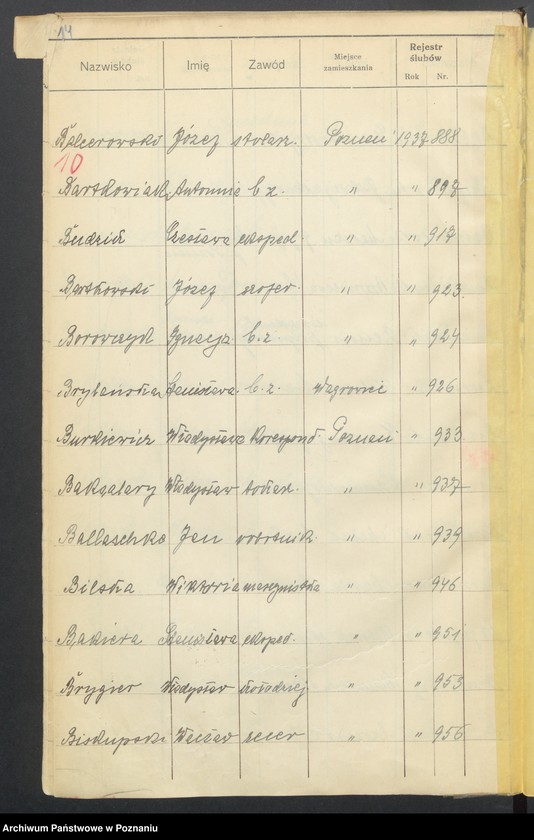 14
Nazwisko Imię Zawód Miejsce zamieszkania Rejestr ślubów
Rok Nr.
Balcerowski Józef stolarz. Poznań 1937 888
10
Bartkowiak Antonina b. z. " " 897
Budzik Czesława eksped. " " 917
Bartkowski Józef szofer " " 923
Borowczyk Ignacy b. z. " " 924
Brylańska Stanisława b. z. Wągrowiec " 926
Burkiewicz Władysława korespond. Poznań " 933
Bakalary Władysław tokarz. " " 937
Ballaschke Jan robotnik " " 939
Bilska Wiktoria maszynistka " " 946
Bakiera Stanisława eksped. " " 951
Brygier Władysław kołodziej " " 953
Biskupski Wacław " " 956
Archiwum Państwowe w Poznaniu